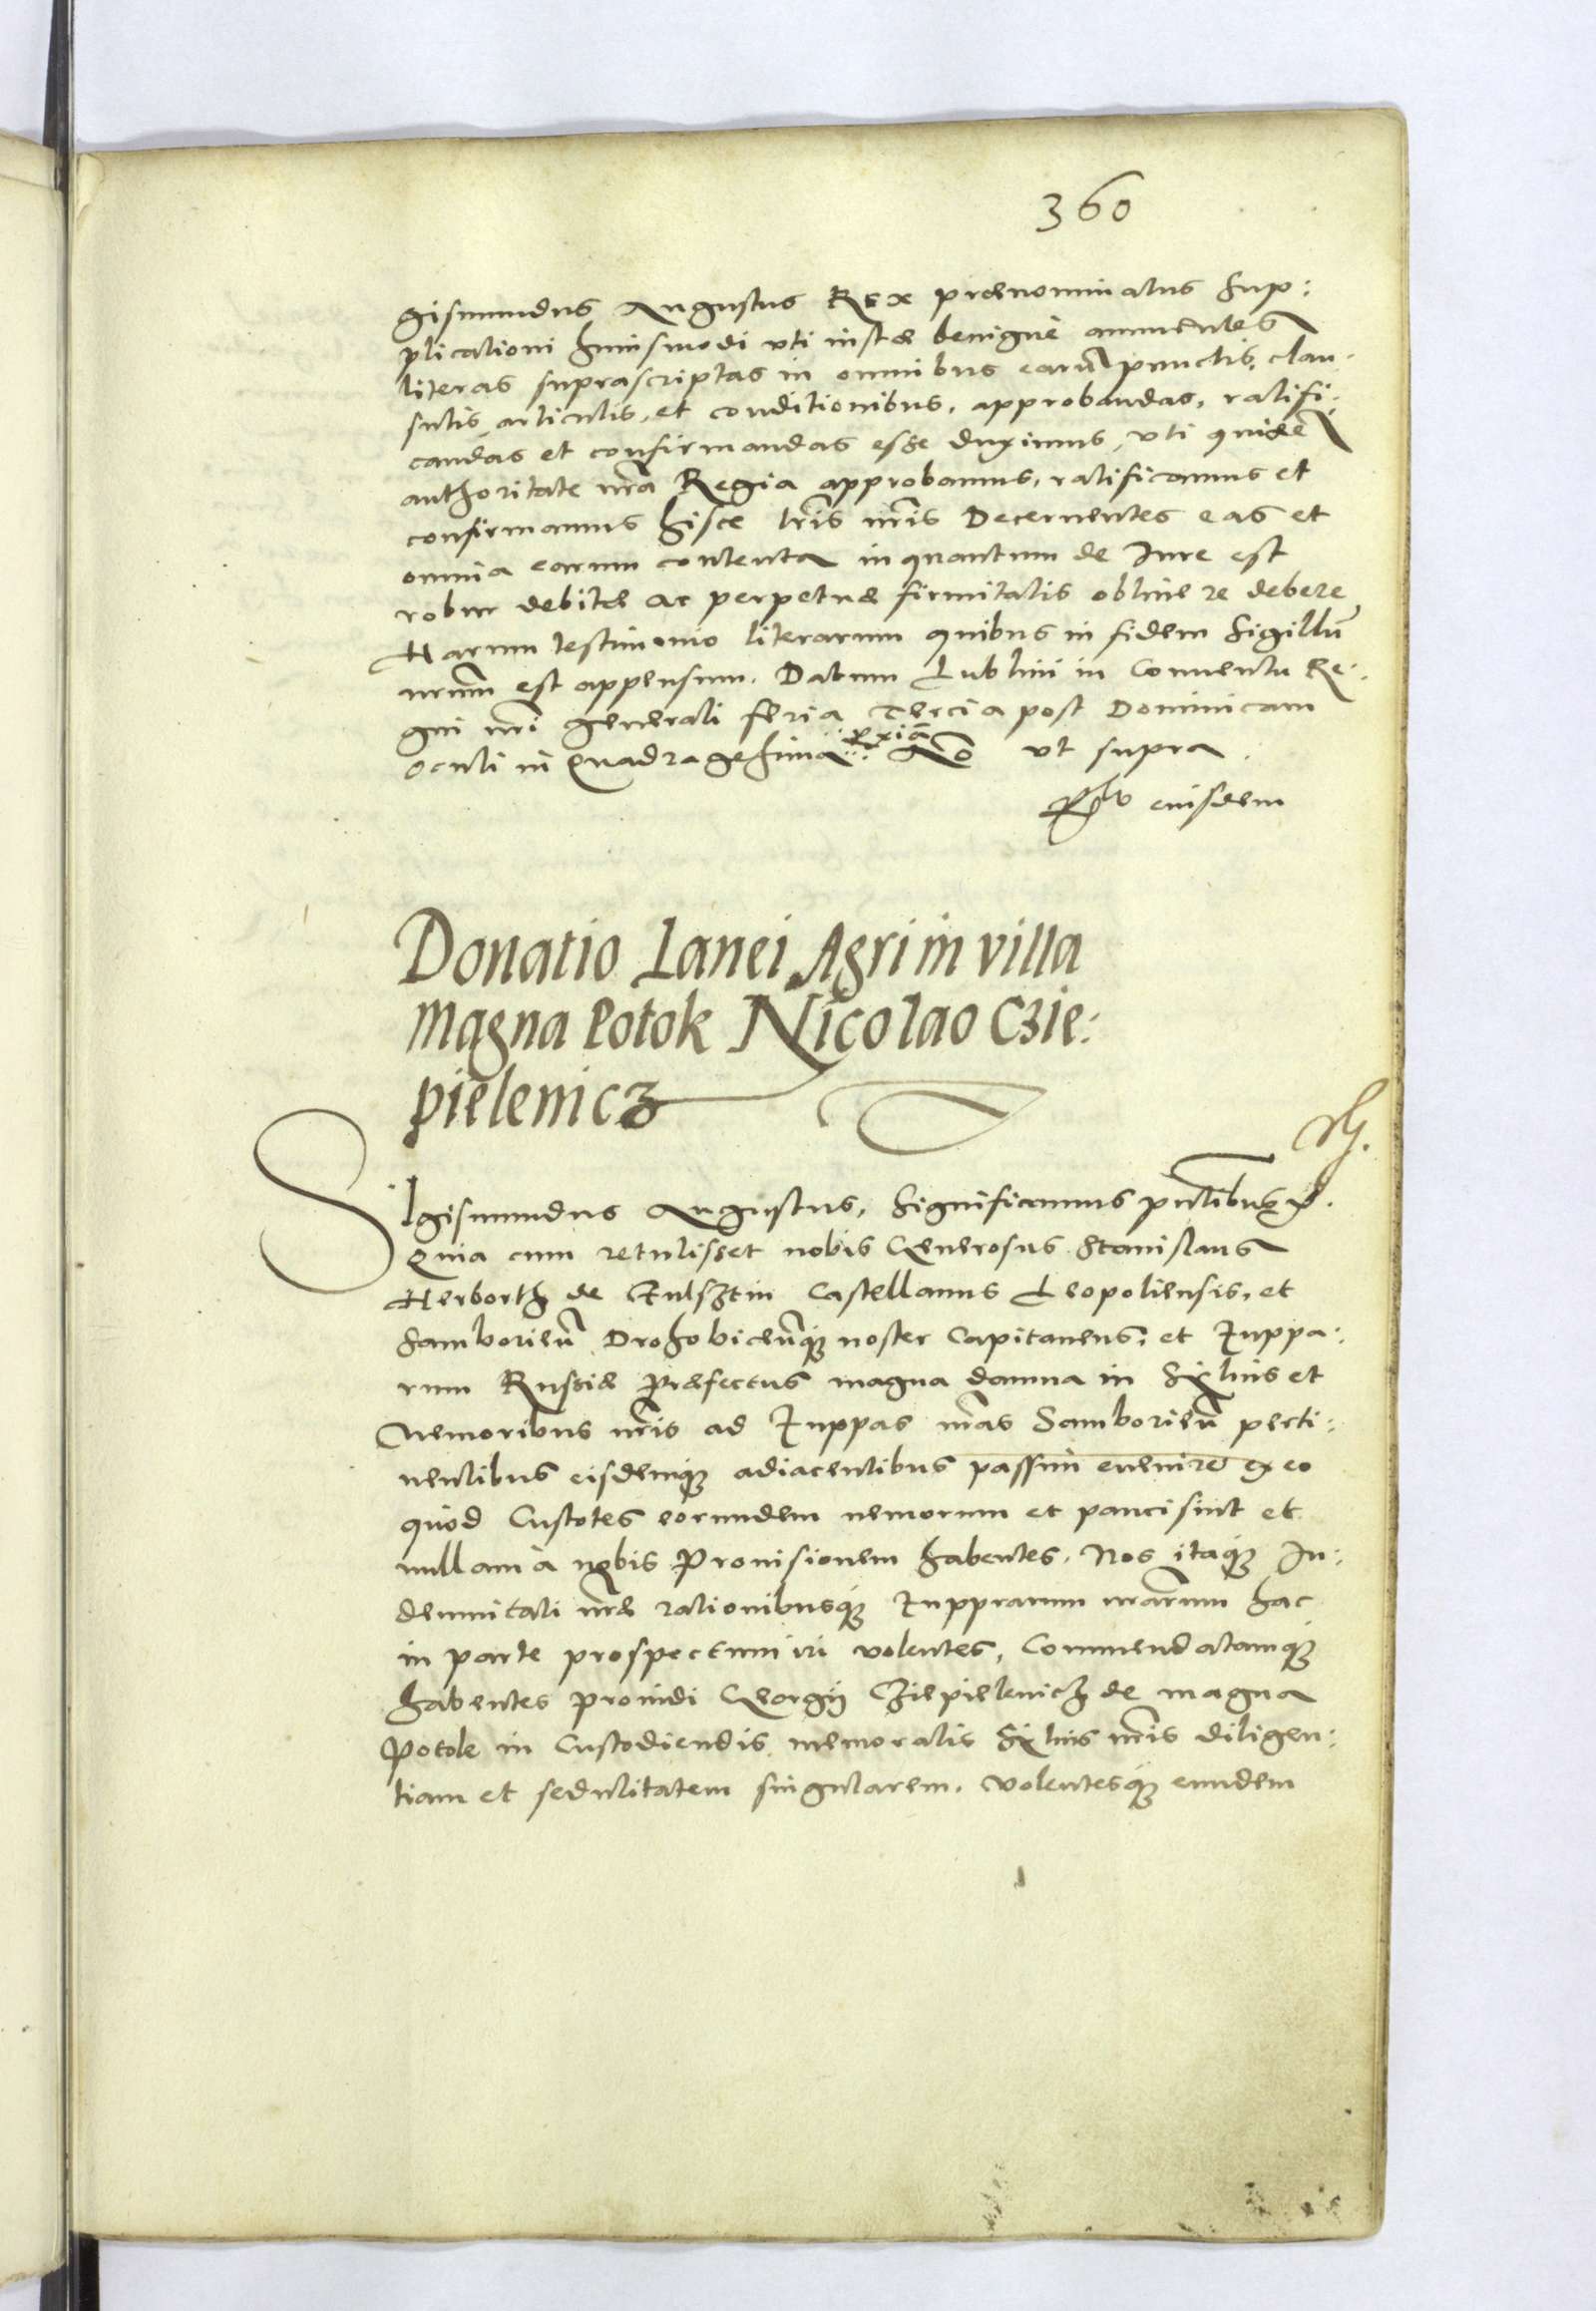 360
gismundus Augustus Rex prænominatus sup:
plicationi huiusmodi vti iustæ benignè annuentes
literas suprascriptas in omnibus earũ punctis, clau:
sulis, articulis, et conditionibus, approbandas, ratifi:
candas et confirmandas esse duximus, vti quidẽ
authoritate nr̃a Regia approbamus, ratificamus et
confirmamus hisce lr̃is nr̃is Decernentes eas et
omnia earum contenta in quantum de Iure est
robur debitæ ac perpetuæ firmitatis obtinere debere
Harum testimonio literarum quibus in fidem sigillũ
nrũm est appensum. Datum Lublini in Conuentu Re:
gni nr̃i generali feria Tercia post Dominicam
Oculi in Quadragesima proxiã Aõ vt supra.
Rlo eiusdem
Donatio Lanei Agri in villa
Magna Potok Nicolao Czie:
pielenicz
Sigismundus Augustus, Significamus pn̄tibus
Quia cum retulisset nobis Generosus Stanislaus
Herborth de Fulsztin Castellanus Leopoliensis, et
Samborieñ Drohobiceñq; noster Capitaneus, et Zuppa:
rum Russiæ Præfectus magna damna in Syluis et
Nemoribus nr̃is ad Zuppas nr̃as Samborieñ perti:
nentibus eisdemq; adiacentibus passim euenire ex eo
quòd Custotes eorundem nemorum et pauci sint et
nullam à nobis Prouisionem habentes. Nos itaq; In:
demnitati nr̃æ rationibusq; Zupprarum nrãrum hac
in parte prospectum iri volentes, Commendatamq;
habentes prouidi Georgij Cziepielenicz de magna
Potok in Custodiendis memoratis Syluis nr̃is diligen:
tiam et sedulitatem singularem. Volentesq; eundem